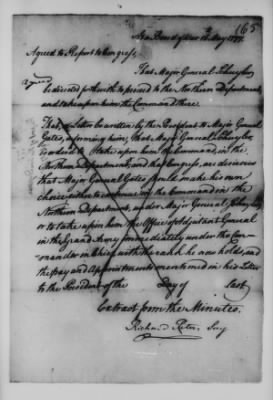 165
War Board of War 14 May 1777.
Agreed to Report to Congress,
That Major General Schuyler
agreed
be directed forthwith to proceed to the Northern Department
and take upon him the Command there.
That, a Letter be written by the President to Major General
Gates, informing him, that Major General Schuyler
is ordered to take upon him the Command, in the
Northern Department, and the Congress, are desirous
that Major General Gates should make his own
choice, either to continue in the Command in the
Northern Department, under Major General Schuyler
or to take upon him the Office of Adjutant General
in the Grand Army immediately under the Com-
mander in Chief, with the rank he now holds, and
the pay and Appointments mentioned in his Letter
to the President of the Day of last
Extract from the Minutes.
Richard Peters, Secy